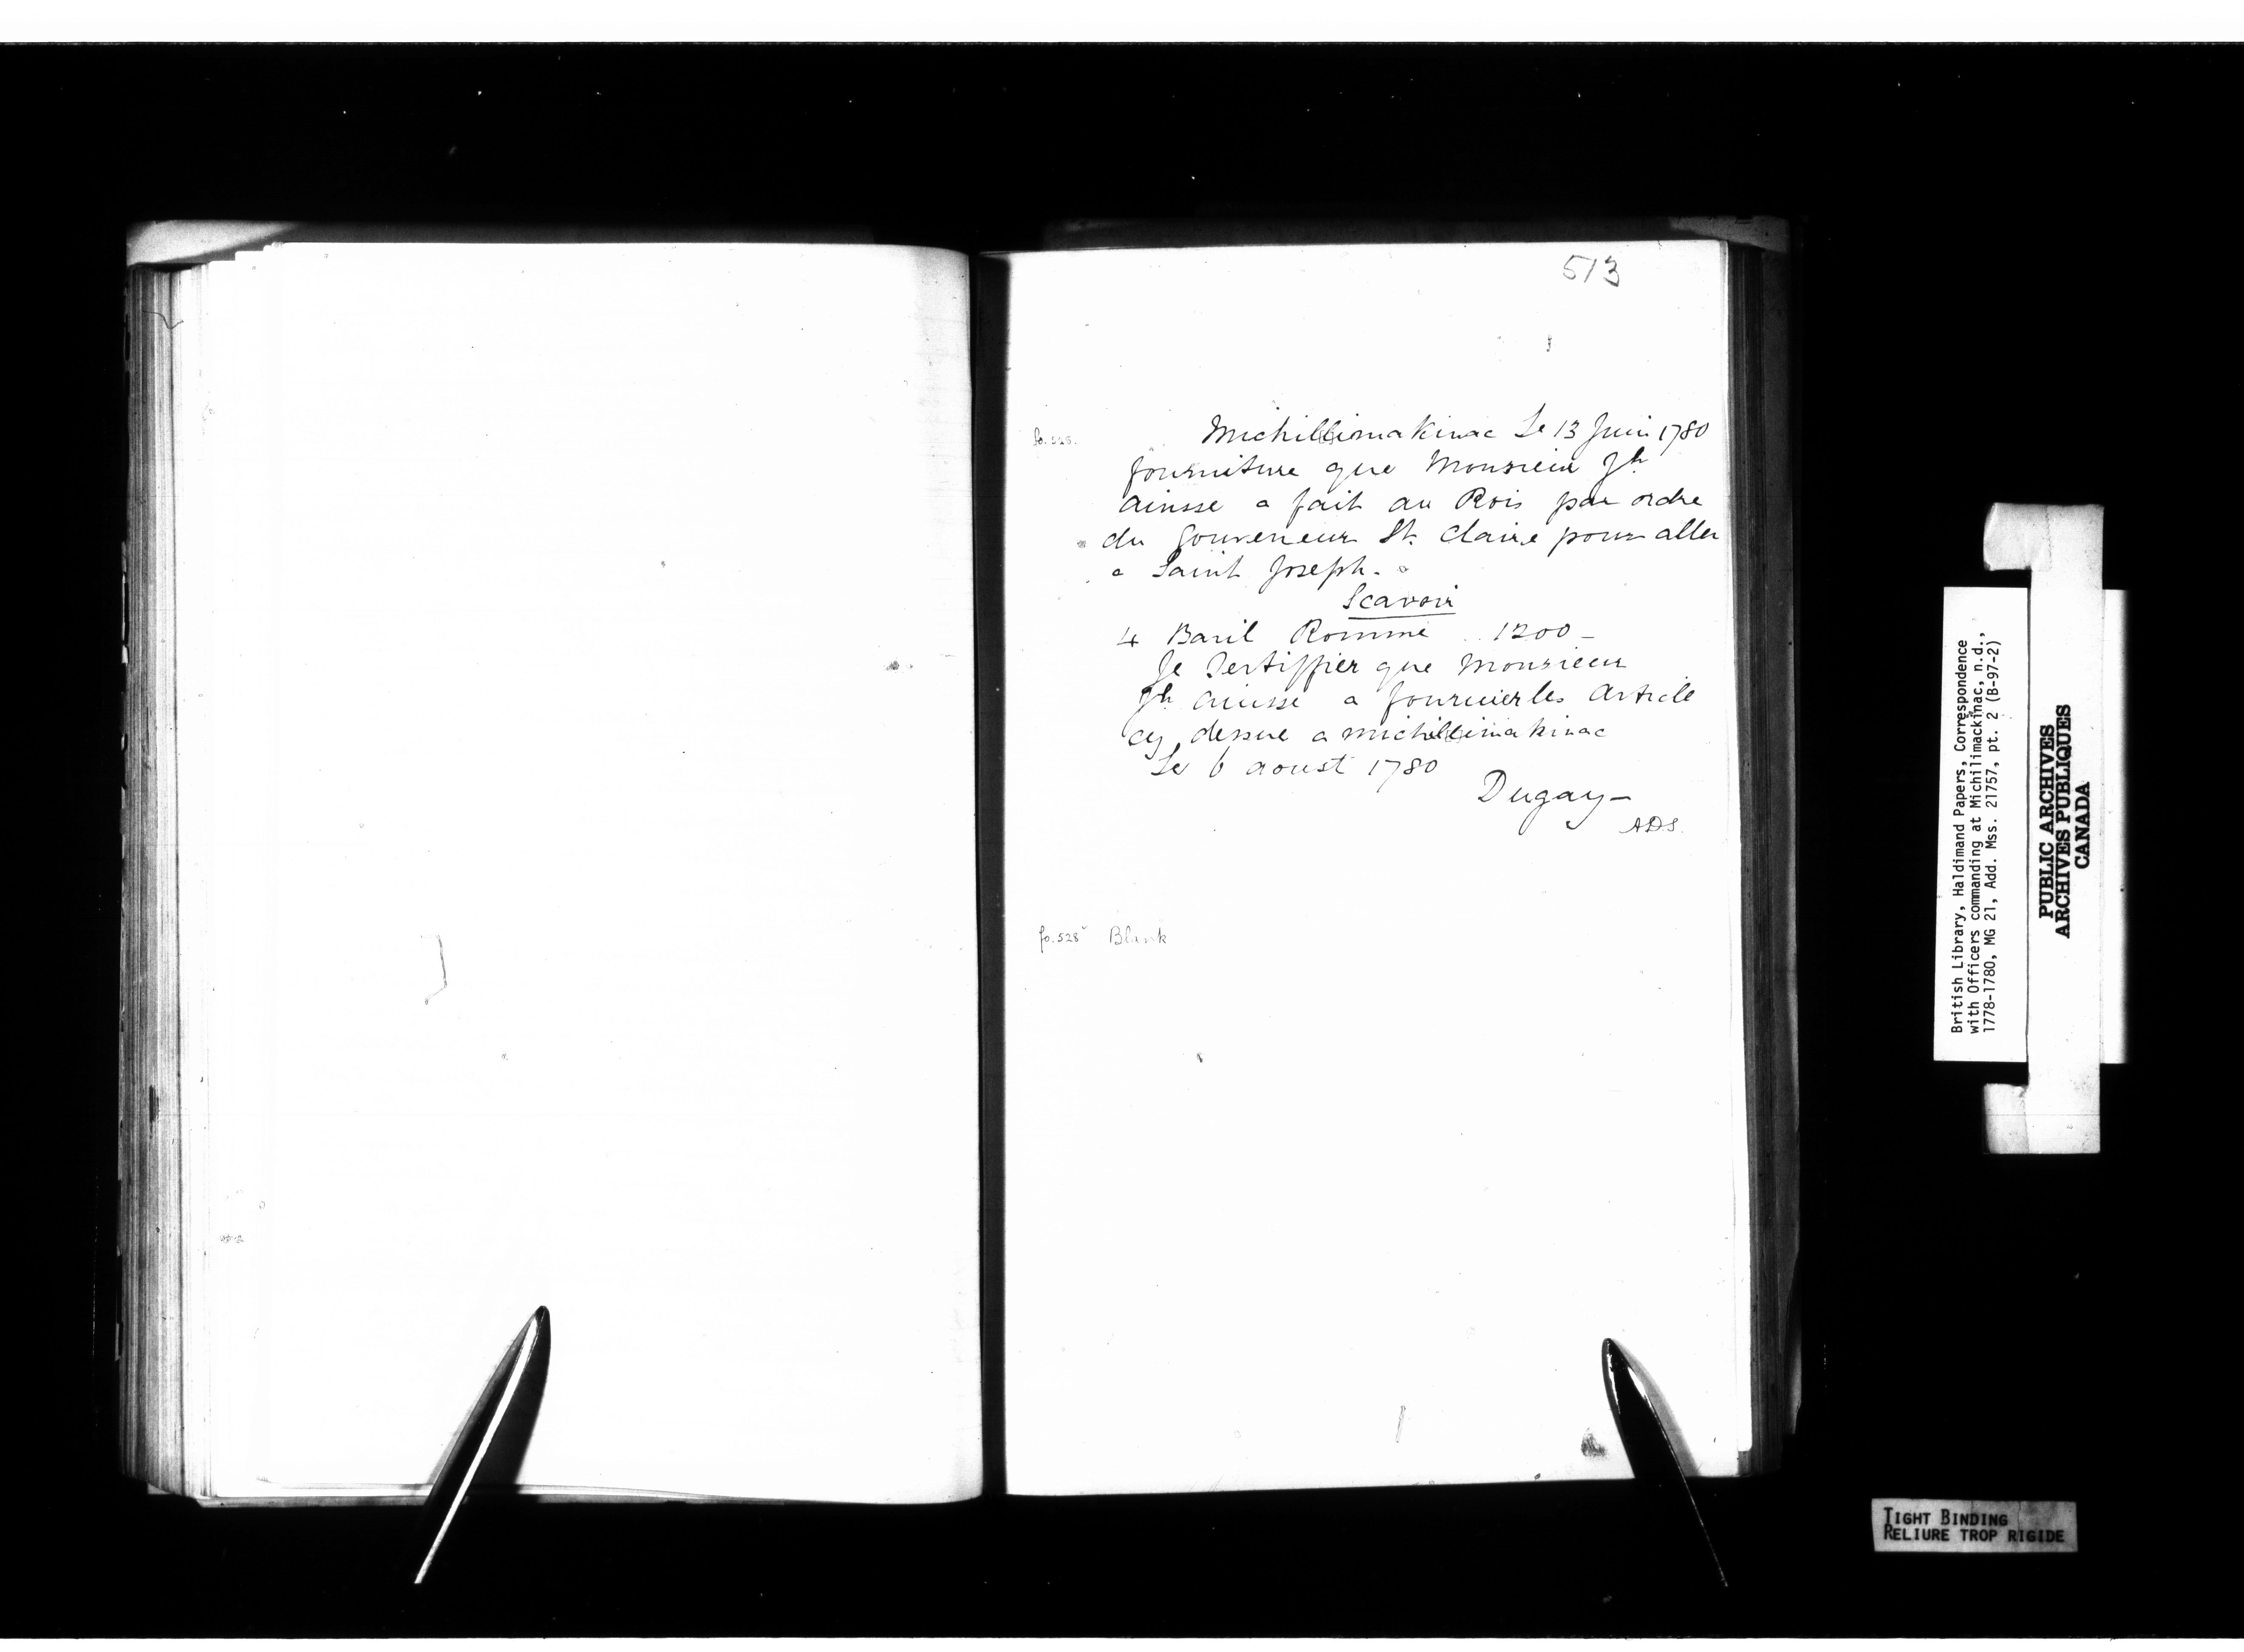 513
fo. 528.
Michillimakinac Le 13 Juin 1780
fourniture que Monsieur Jh
ainsse a fait au Rois par ordre
du Gouverneur St. Claire pour aller
a Saint Joseph.
Scavoir
4 Baril Romme .. 1200 -
Je Sertiffier que Monsieur
Jh ainsse a fournier les Article
cy dessue a michillimakinac
Le 6 aoust 1780
Dugay -
ADS.
fo. 528v Blank
British Library, Haldimand Papers, Correspondence
with Officers commanding at Michilimackinac, n.d.,
1778-1780, MG 21, Add. Mss. 21757, pt. 2 (B-97-2)
PUBLIC ARCHIVES
ARCHIVES PUBLIQUES
CANADA
TIGHT BINDING
RELIURE TROP RIGIDE